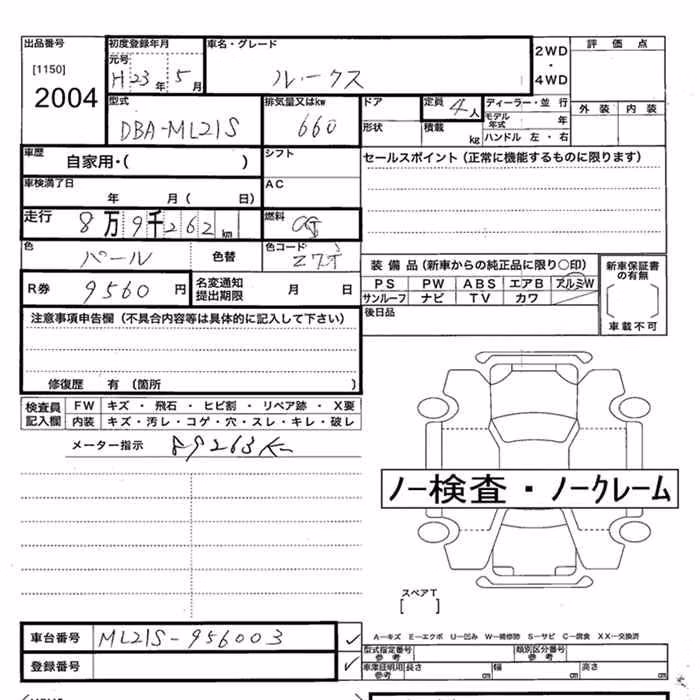 出品番号 初度登録年月 車名・グレード 2WD・4WD 評価点
[1150] 元号 H23年5月 ルークス
2004 外装 内装
型式 DBA-ML21S 排気量又はkw 660 ドア 形状 定員 4人 積載 kg ディーラー・並行 モデル年式 年 ハンドル 左・右
車歴 自家用・( ) シフト セールスポイント (正常に機能するものに限ります)
車検満了日 年 月( 日) AC
走行 8万9千262km 燃料
色 パール 色替 色コード
装備品(新車からの純正品に限り○印) 新車保証書の有無
R券 9560円 名変通知提出期限 月 日 PS PW ABS エアB アルミW
サンルーフ ナビ TV カワ
後日品 車載不可
注意事項申告欄 (不具合内容等は具体的に記入して下さい)
修復歴 有 (箇所 )
検査員記入欄 FW キズ・飛石・ヒビ割・リペア跡・X要
内装 キズ・汚レ・コゲ・穴・スレ・キレ・破レ
メーター指示 89263K
ノー検査・ノークレーム
スペアT
[ ]
車台番号 ML21S-956003 ✓ A―キズ E―エクボ U―凹み W―補修跡 S―サビ C―腐食 XX―交換済
型式指定番号 参考 類別区分番号 参考
登録番号 ✓ 車庫証明用 参考 長さ cm 幅 cm 高さ cm